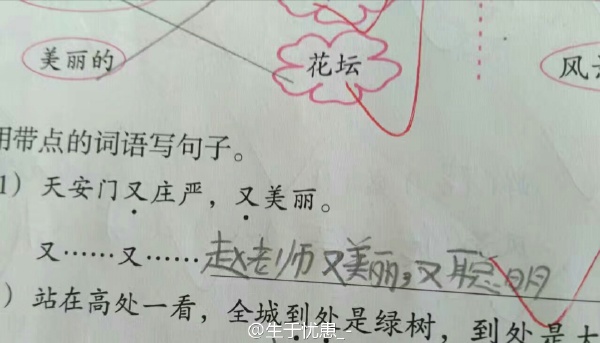 美丽的
花坛
风
用带点的词语写句子。
1）天安门又庄严，又美丽。
又……又……赵老师又美丽，又聪明
）站在高处一看，全城到处是绿树，到处是大
@生于忧患_-